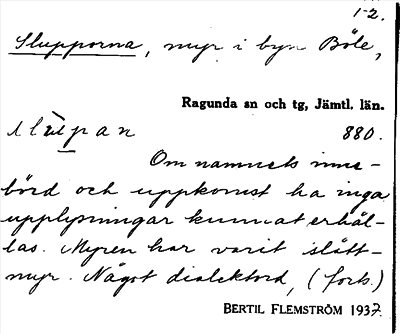 1-2.
Slupporna, myr i byn Böle,
Ragunda sn och tg, Jämtl. län.
880.
Om namnets inne-
börd och uppkomst ha inga
upplysningar kunnat erhål-
las. Myren har varit slått-
myr. Något dialektord, (forts.)
BERTIL FLEMSTRÖM 1937.